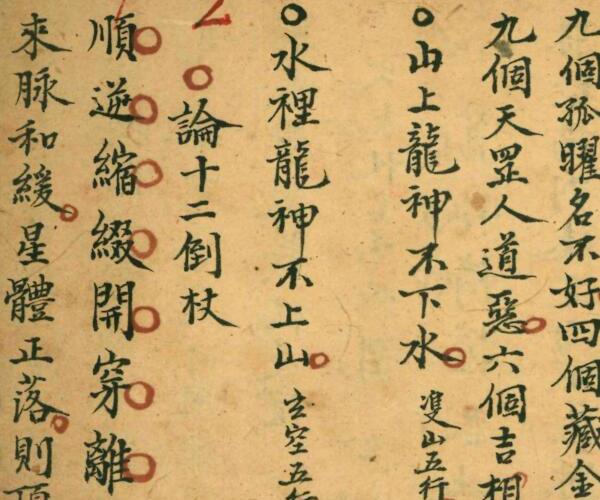 九個孤曜名不好四個藏金
九個天罡人道惡六個吉相
山上龍神不下水雙山五行
水裡龍神不上山玄空五行
論十二倒杖
順逆縮綴開穿離
來脉和緩星體正落則頂